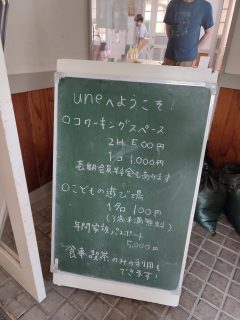 uneへようこそ!
○コワーキングスペース
2H 500円
1日 1,000円
長期会員料金もあります
○こどもの遊び場
1名 100円
(3歳未満無料)
年間家族パスポート
5,000円
食事・喫茶のみの利用も
できます!